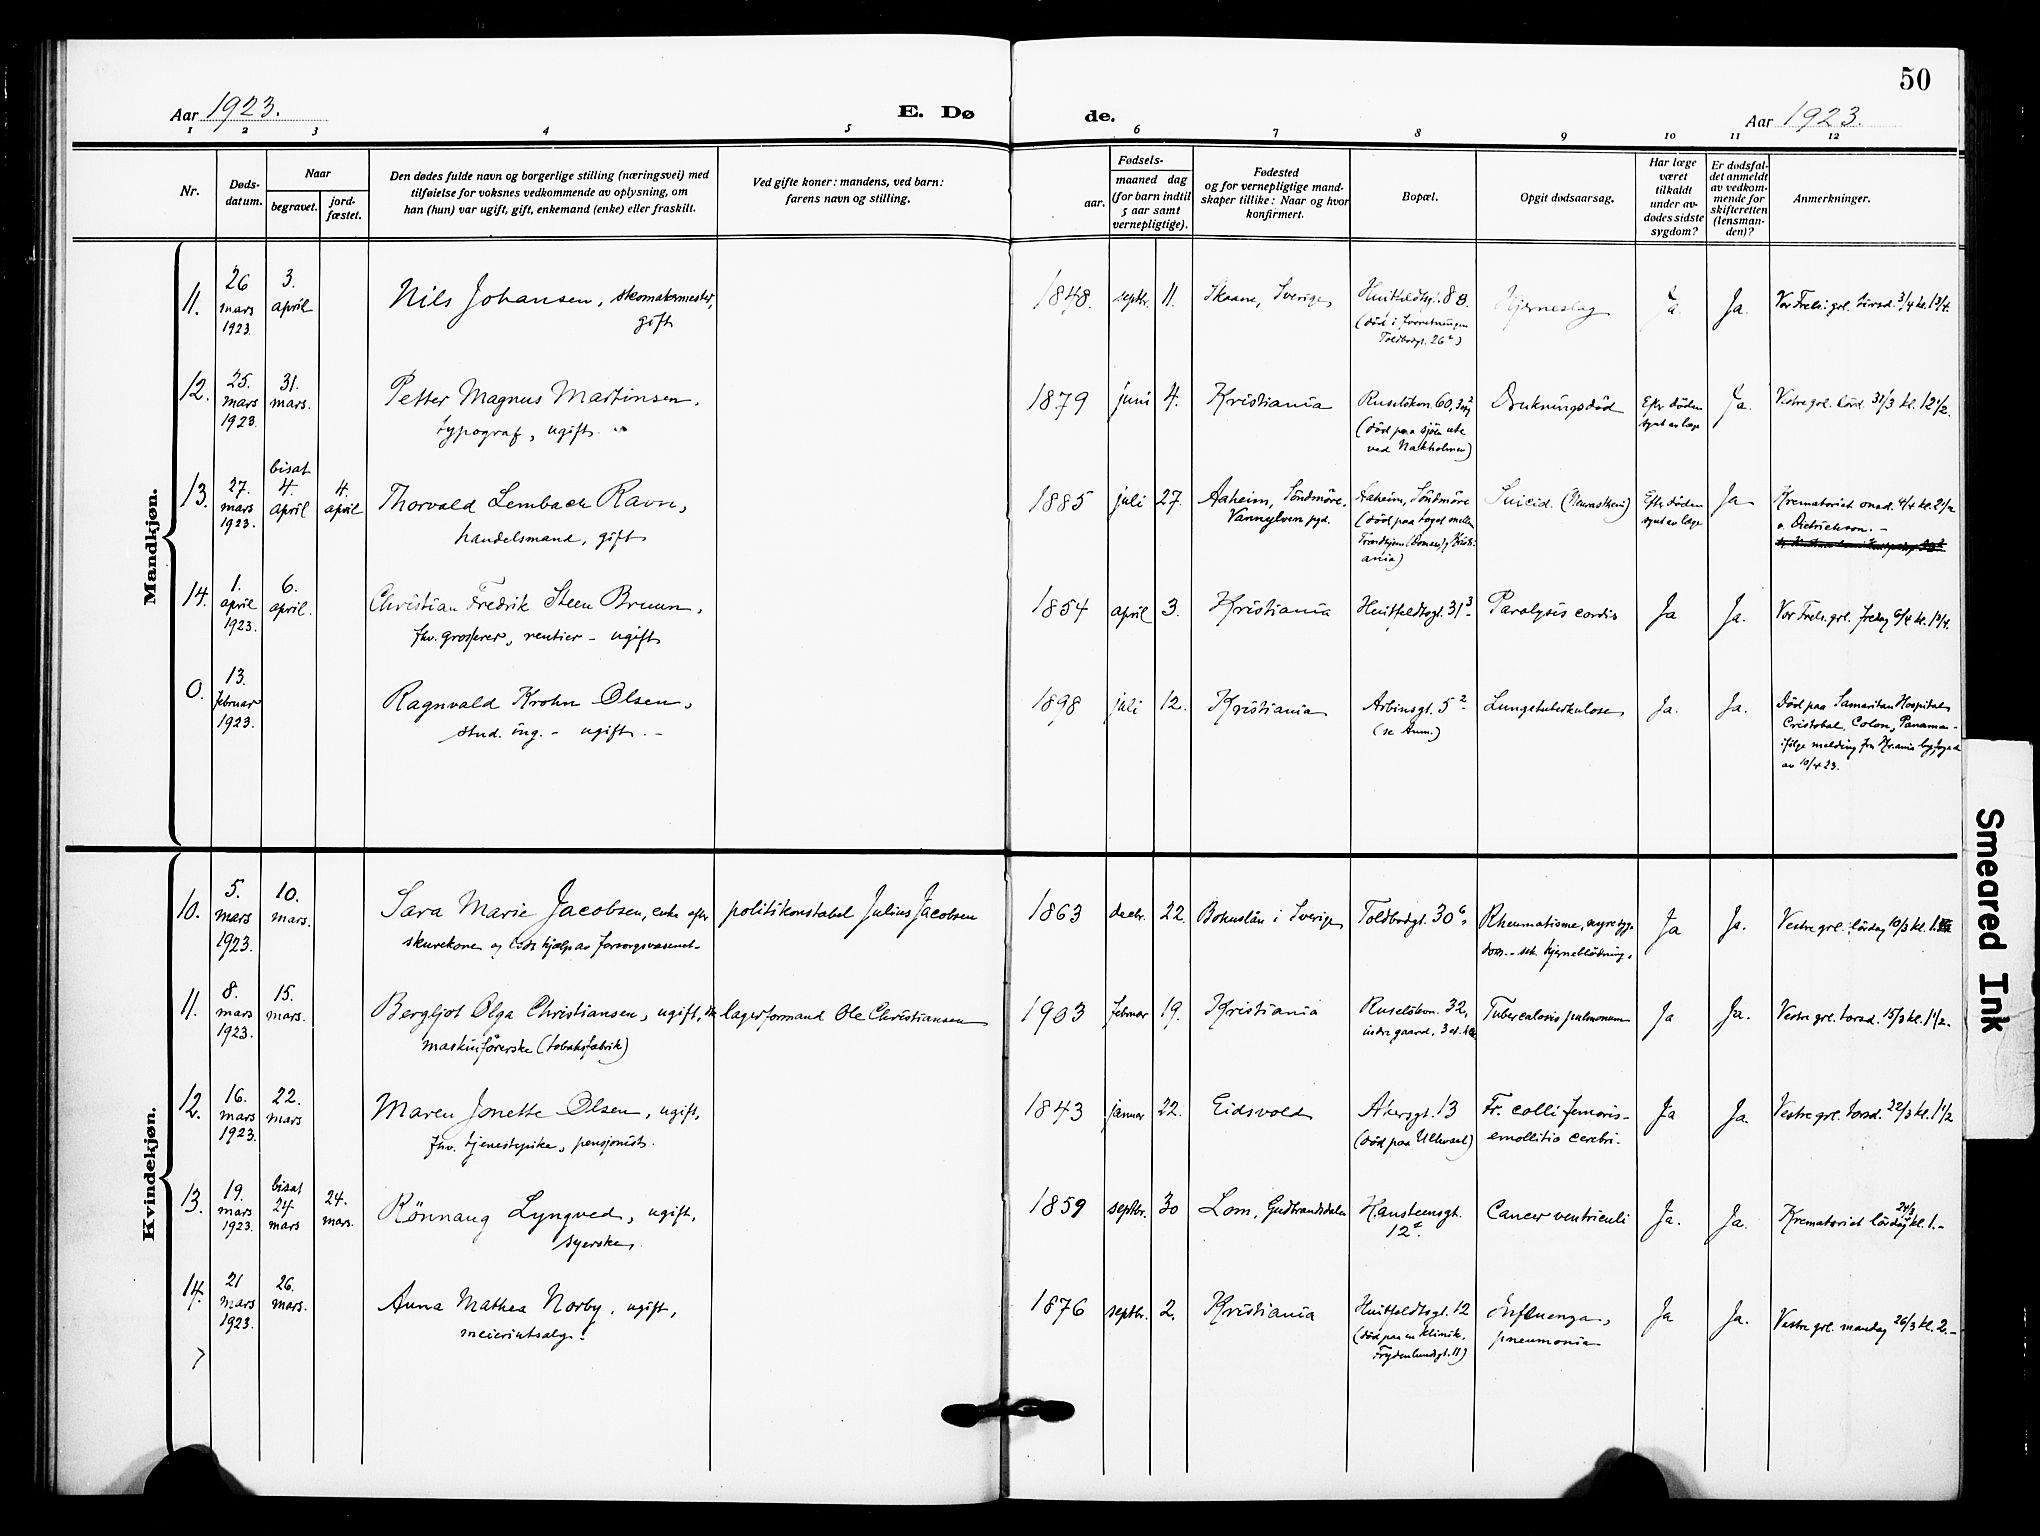 50
Aar 1923.
E. Dø
de.
Aar 1923.
1 2 3 4 5 6 7 8 9 10 11 12
Nr.
Døds-
datum.
Naar
begravet.
jord-
fæstet.
Den dødes fulde navn og borgerlige stilling (næringsvei) med
tilføielse for voksnes vedkommende av oplysning, om
han (hun) var ugift, gift, enkemand (enke) eller fraskilt.
Ved gifte koner: mandens, ved barn:
farens navn og stilling.
Fødsels-
aar.
maaned dag
(for barn indtil
5 aar samt
vernepligtige).
Fødested
og for vernepligtige mand-
skaper tillike: Naar og hvor
konfirmert.
Bopæl.
Opgit dødsaarsag.
Har læge
været
tilkaldt
under av-
dødes sidste
sygdom?
Er dødsfal-
det anmeldt
av vedkom-
mende for
skifteretten
(lensman-
den)?
Anmerkninger.
Mandkjøn.
11.
26
mars
1923.
3.
april
Nils Johansen, skomakermester,
gift
1848.
septbr.
11.
Skaane, Sverige
Huitfeldtsgt. 8 B.
(död i forretningen
Toldbodgt. 26)
Hjerneslag
Ja.
Ja.
Vor Frels. grl. tirsd. 3/4 kl. 1 3/4.
12.
25.
mars
1923.
31.
mars.
Petter Magnus Martinsen,
typograf, ugift.
1879
juni
4.
Kristiania
Ruselökvn. 60,
(död paa sjöen ute
ved Nakholmen)
Drukningsdöd
Efter döden
synt av læge
Ja.
Vestre grl. lörd. 31/3 kl. 12 1/2.
13.
27.
mars
1923.
bisat
4.
april
4.
april
Thorvald Lembach Ravn,
handelsmand, gift
1885
juli
27.
Aaheim, Söndmöre,
Vannylven pgd.
Aaheim, Söndmöre
(död paa toget mellem
Trondhjem (Domaas) og Kristi-
ania)
Suicid. (Neurastheni)
Efter döden
synt av læge
Ja
Krematoriet onsd. 4/4 kl. 2 1/2
v. Dietrichson. -
14.
1.
april
1923.
6.
april.
Christian Fredrik Steen Bruun,
fhv. grosserer, rentier - ugift
1854
april
3.
Kristiania
Huitfeldtsgt. 31 3
Paralysis cordis
Ja
Ja.
Vor Frels. grl. fredag 6/4 kl. 1 3/4.
0.
13.
februar
1923.
Ragnvald Krohn Olsen,
stud. ing. - ugift. -
1898
juli
12.
Kristiania
Arbinsgt. 5 2
(se Anm.)
Lungetuberkulose
Ja.
Ja.
Död paa Samaritan Hospital,
Cristobal, Colon, Panama -
ifölge melding fra Kr.ania byfoged
av 10/4 23.
Kvindekjøn.
10.
5.
mars
1923.
10.
mars.
Sara Marie Jacobsen, enke efter
skurekone og litt hjælp av forsorgsvæsenet
politikonstabel Julius Jacobsen
1863
decbr.
22.
Bohuslän i Sverige
Toldbodgt. 30 6,
Rheumatisme, nyresyg-
dom - hjerneblödning.
Ja
Ja.
Vestre grl. lördag 10/3 kl. 1.
11.
8.
mars
1923.
15.
mars.
Bergljot Olga Christiansen, ugift,
maskinförerske (tobaksfabrik)
lagerformand Ole Christiansen
1903
februar
19.
Kristiania
Ruselökvn. 32,
indre gaard, 3 et.
Tuberculosis pulmonum
Ja
Ja.
Vestre grl. torsd. 15/3 kl. 1 1/2.
12.
16.
mars
1923.
22.
mars
Maren Jonette Olsen, ugift,
fhv. tjenestepike, pensjonist.
1843
januar
22.
Eidsvold
Akersgt. 13
(död paa Ullevaal)
Fr. colli femoris -
emollitio cerebri.
Ja
Ja.
Vestre grl. torsd. 22/3 kl. 1 1/2
13.
19.
mars
1923.
bisat
24
mars
24.
mars.
Rönnaug Lyngved, ugift,
syerske.
1859
septbr.
30
Lom, Gudbrandsdalen
Hansteensgt.
12
Cancer ventriculi
Ja.
Ja.
Krematoriet lördag 24/3 kl. 1. -
14.
21
mars
1923.
26.
mars.
Anna Mathea Norby, ugift,
meieriutsalg.
1876
septbr.
2.
Kristiania
Huitfeldtsgt. 12
(död paa en klinik,
Frydenlundsgt. 11)
Influenza,
pneumonia
Ja
Ja.
Vestre grl. mandag 26/3 kl. 2. -
Smeared Ink